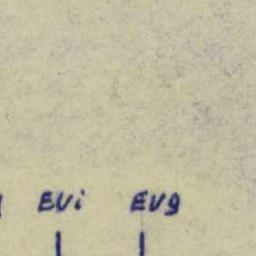 EVi EVg